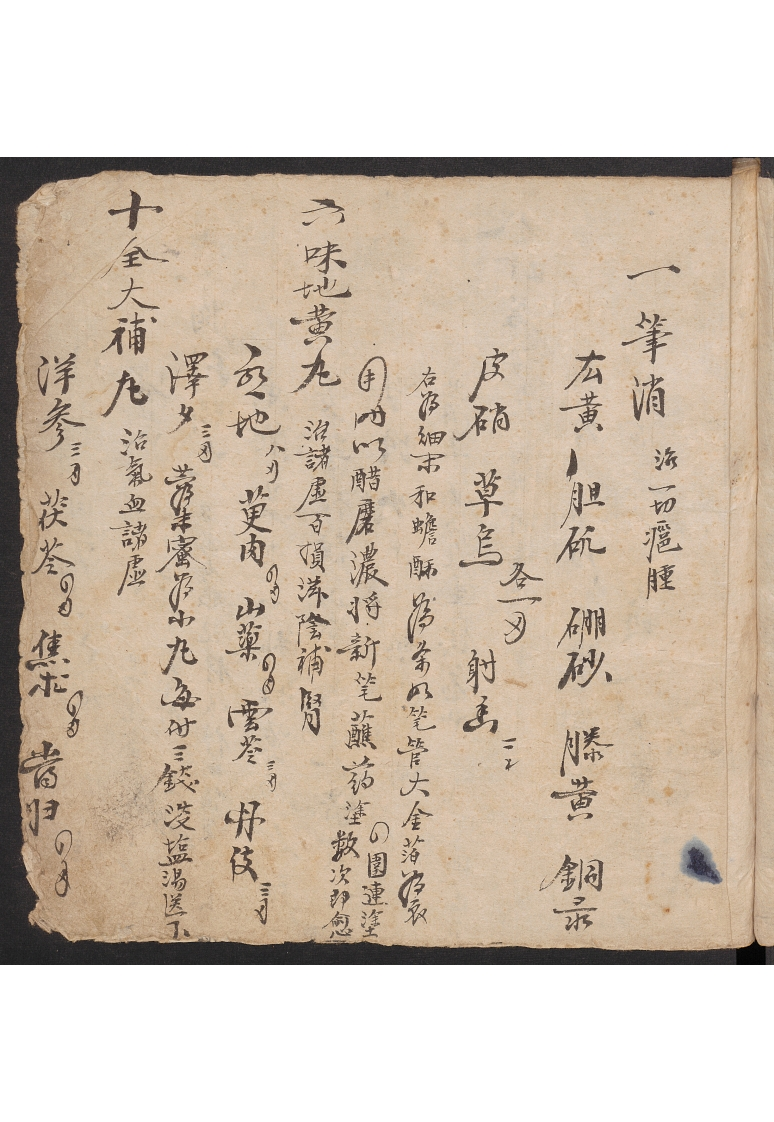 一筆消 治一切瘟腫
広黃 胆矾 硼砂 滕黃 銅录
皮硝 草烏 各一刄 射香 三卜
右為細末和蟾酥為条如笔管大金萡為衣
用時以醋磨濃將新笔蘸药塗四圍連塗
數次即愈
六味地黃丸 治諸虛百損滋陰補腎
熟地八刄 萸肉四刄 山藥四刄 雲苓三刄 丹皮三刄
澤夕三刄 共為末蜜為小丸每付三錢淡塩湯送下
十全大補丸 治氣血諸虛
洋參三刄 茯苓四刄 焦朮四刄 當归四刄